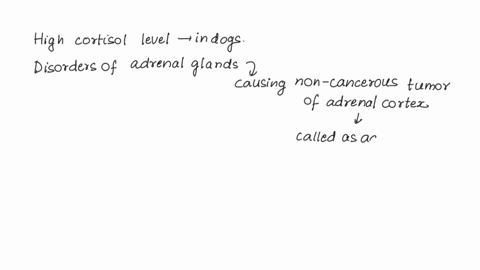 High cortisol level → in dogs.
Disorders of adrenal glands
causing non-cancerous tumor
of adrenal cortex
↓
called as ad